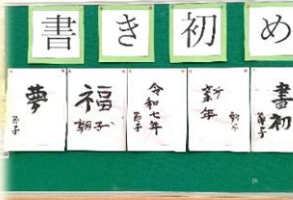 書き初め
夢
福
令和七年
新年
書初